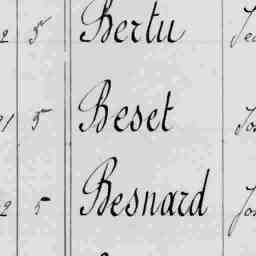 2 5 Bertu Je
21 5 Beset Jo
2 5 Besnard Jos